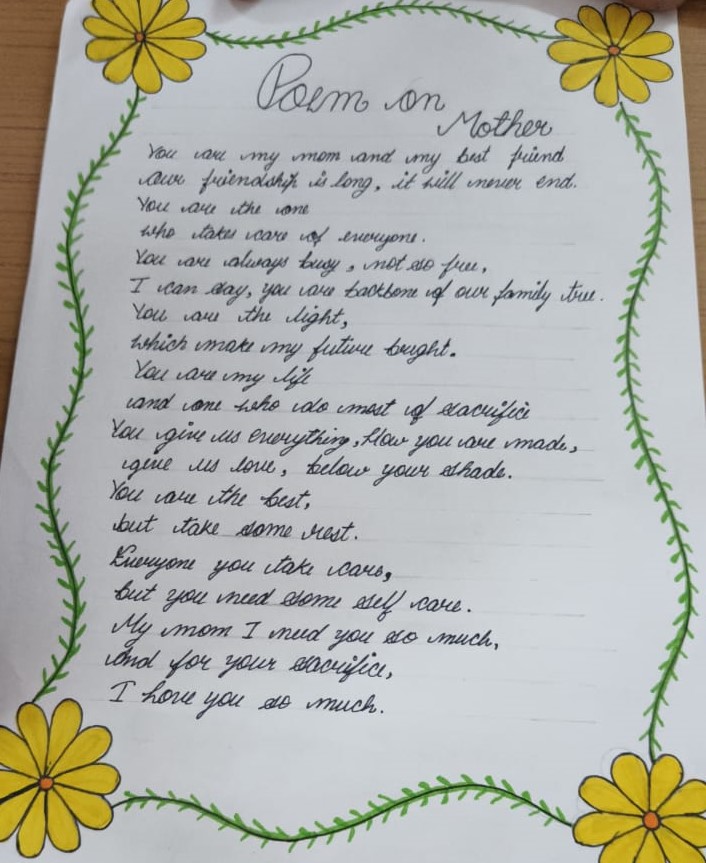 Poem on
Mother
You are my mom and my best friend
our friendship is long, it will never end.
You are the one
who takes care of everyone.
You are always busy, not so free,
I can say, you are backbone of our family tree.
You are the light,
which make my future bright.
You are my life
and one who do most of sacrifice
You give us everything, How you are made,
give us love, below your shade.
You are the best,
but take some rest.
Everyone you take care,
but you need some self care.
My mom I need you so much,
And for your sacrifice,
I love you so much.